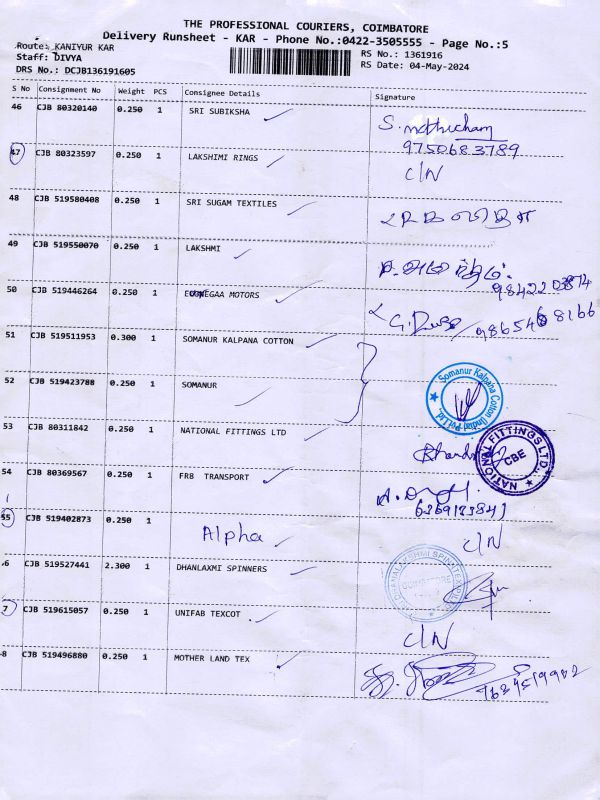 THE PROFESSIONAL COURIERS, COIMBATORE
Delivery Runsheet - KAR - Phone No.:0422-3505555 - Page No.:5
Route: KANIYUR KAR
Staff: DIVYA
DRS No.: DCJB136191605
RS No.: 1361916
RS Date: 04-May-2024
S No Consignment No Weight PCS Consignee Details Signature
46 CJB 80320140 0.250 1 SRI SUBIKSHA
9750683789
47 CJB 80323597 0.250 1 LAKSHIMI RINGS C/N
48 CJB 519580408 0.250 1 SRI SUGAM TEXTILES
49 CJB 519550070 0.250 1 LAKSHMI
50 CJB 519446264 0.250 1 MOTORS
51 CJB 519511953 0.300 1 SOMANUR KALPANA COTTON
52 CJB 519423788 0.250 1 SOMANUR
Somanur Kalpana Cotton (India) Pvt Ltd.
53 CJB 80311842 0.250 1 NATIONAL FITTINGS LTD
NATIONAL FITTINGS LTD.,
CBE
54 CJB 80369567 0.250 1 FRB TRANSPORT
55 CJB 519402873 0.250 1 Alpha C/N
6 CJB 519527441 2.300 1 DHANLAXMI SPINNERS
COIMBATORE
7 CJB 519615057 0.250 1 UNIFAB TEXCOT. C/N
8 CJB 519496880 0.250 1 MOTHER LAND TEX